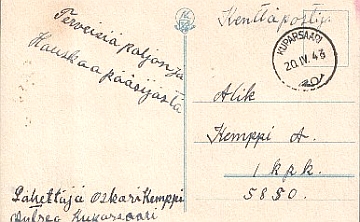 Terveisiä paljon ja
Hauskaa pääsijästä
Kenttäpostia.
KUPARSAARI
20. IV. 43
Alik
Kemppi A.
1 k p k.
5850.
Lähettäjä Oskari Kemppi
Kuparsaari